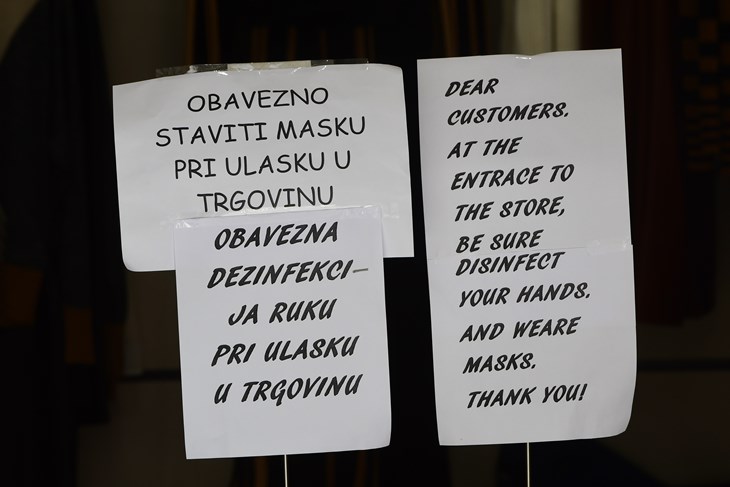 OBAVEZNO
STAVITI MASKU
PRI ULASKU U
TRGOVINU
OBAVEZNA
DEZINFEKCI-
JA RUKU
PRI ULASKU
U TRGOVINU
DEAR
CUSTOMERS.
AT THE
ENTRACE TO
THE STORE,
BE SURE
DISINFECT
YOUR HANDS.
AND WEARE
MASKS.
THANK YOU!